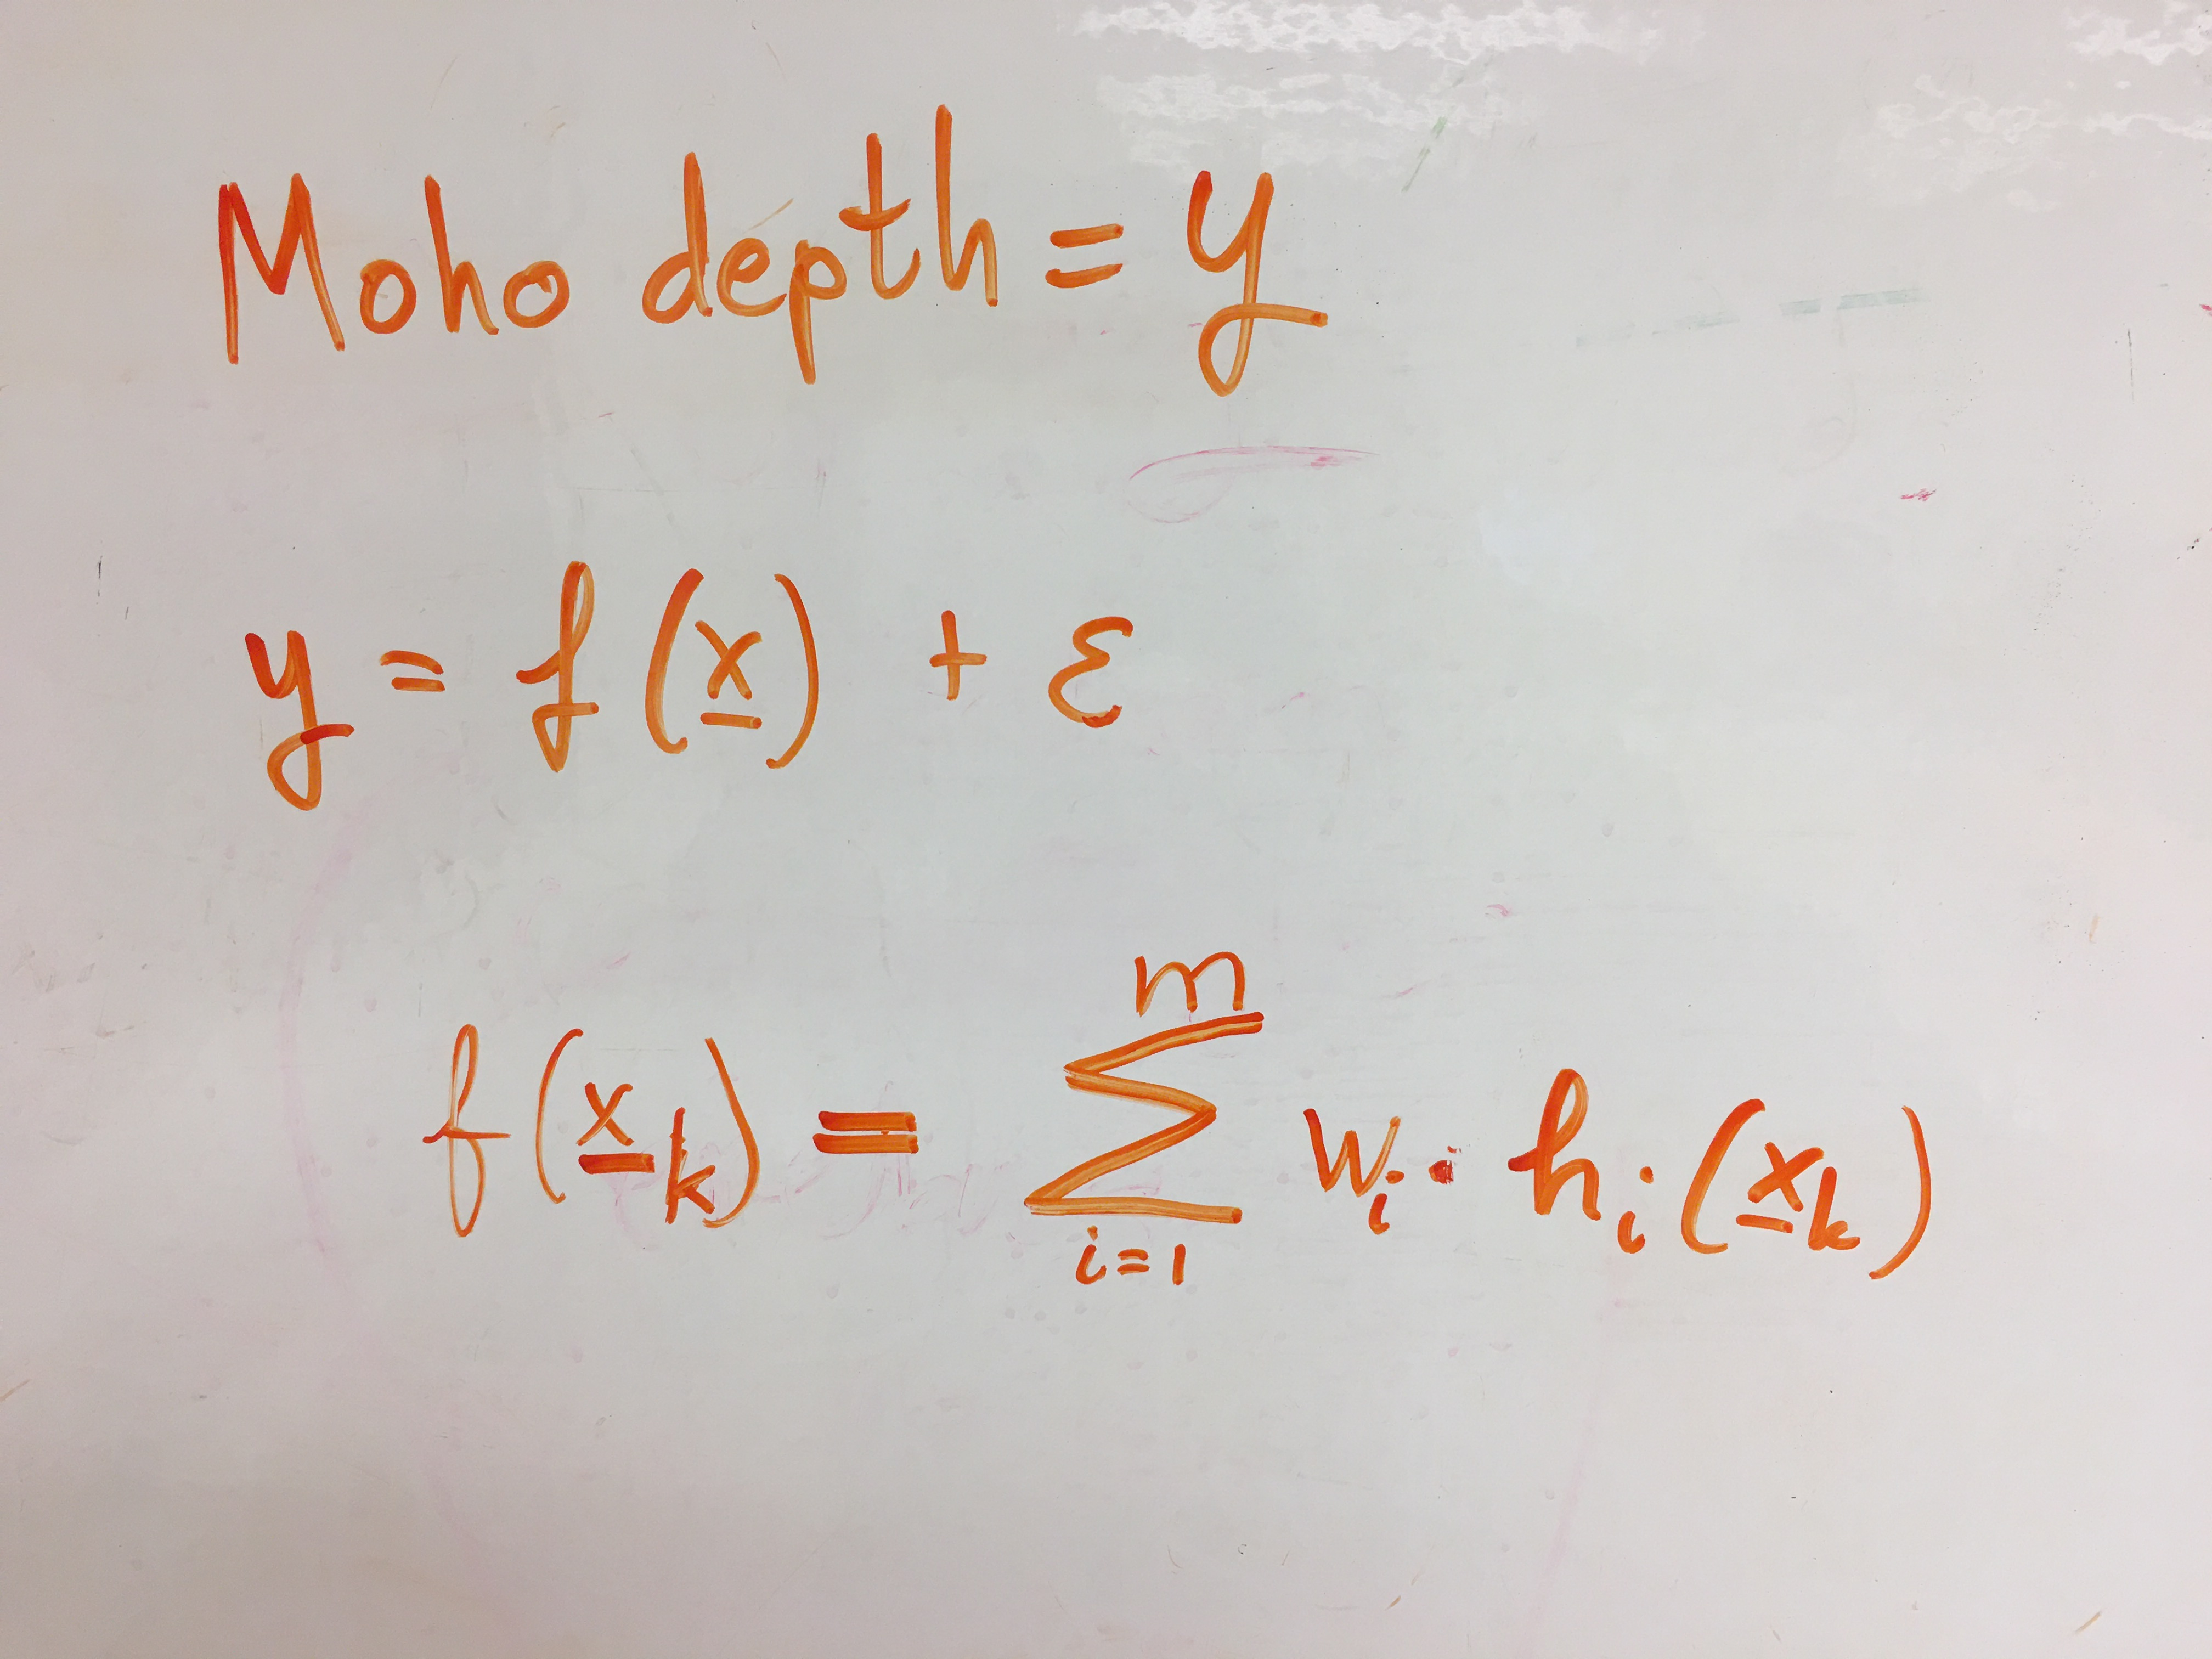 Moho depth = y
y = f(x̲) + ε
f(x̲ₖ) = ∑ᵢ₌₁ᵐ wᵢ · hᵢ(x̲ₖ)